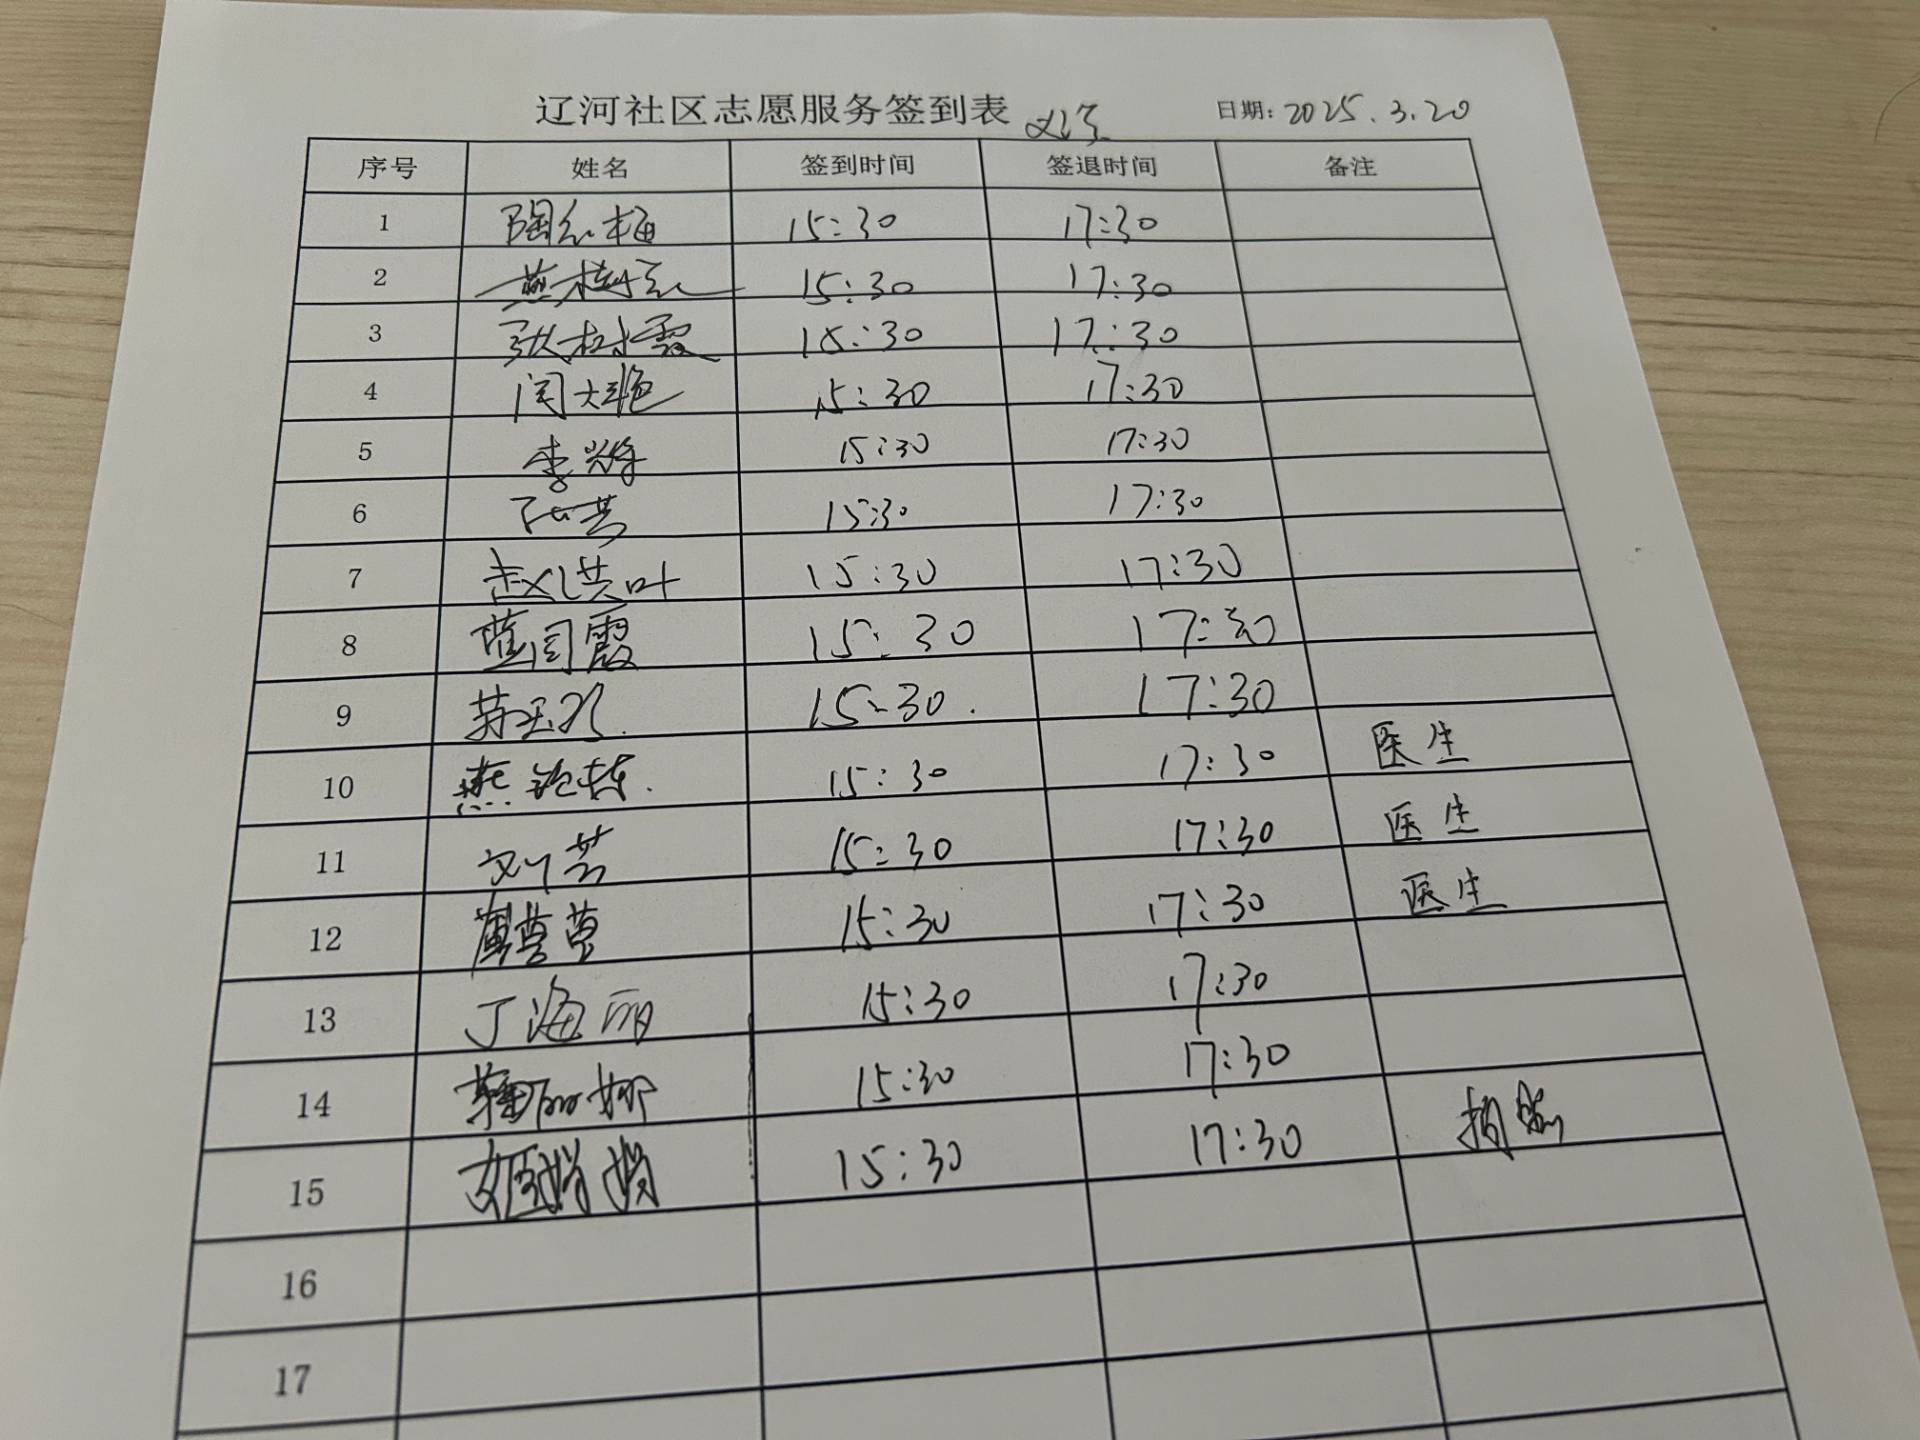 辽河社区志愿服务签到表
日期: 2025.3.20
序号 姓名 签到时间 签退时间 备注
1 陶红梅 15:30 17:30
2 15:30 17:30
3 张树霞 15:30 17:30
4 闫大艳 15:30 17:30
5 李 15:30 17:30
6 15:30 17:30
7 赵洪叶 15:30 17:30
8 蓝闫霞 15:30 17:30
9 15:30 17:30
10 燕 15:30 17:30 医生
11 刘芸 15:30 17:30 医生
12 15:30 17:30 医生
13 丁海丽 15:30 17:30
14 韩丽娜 15:30 17:30
15 姬娟娟 15:30 17:30 拍照
16
17